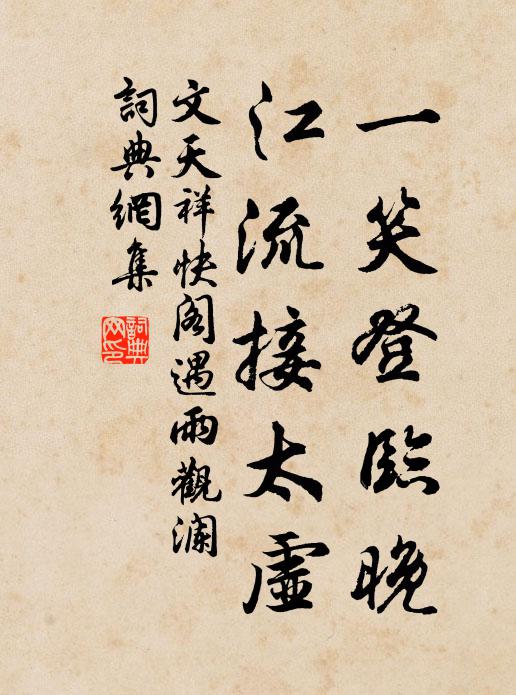 一笑登臨晚
江流接太虛
文天祥快阁遇雨觀澜
詞典網集
詞典網印